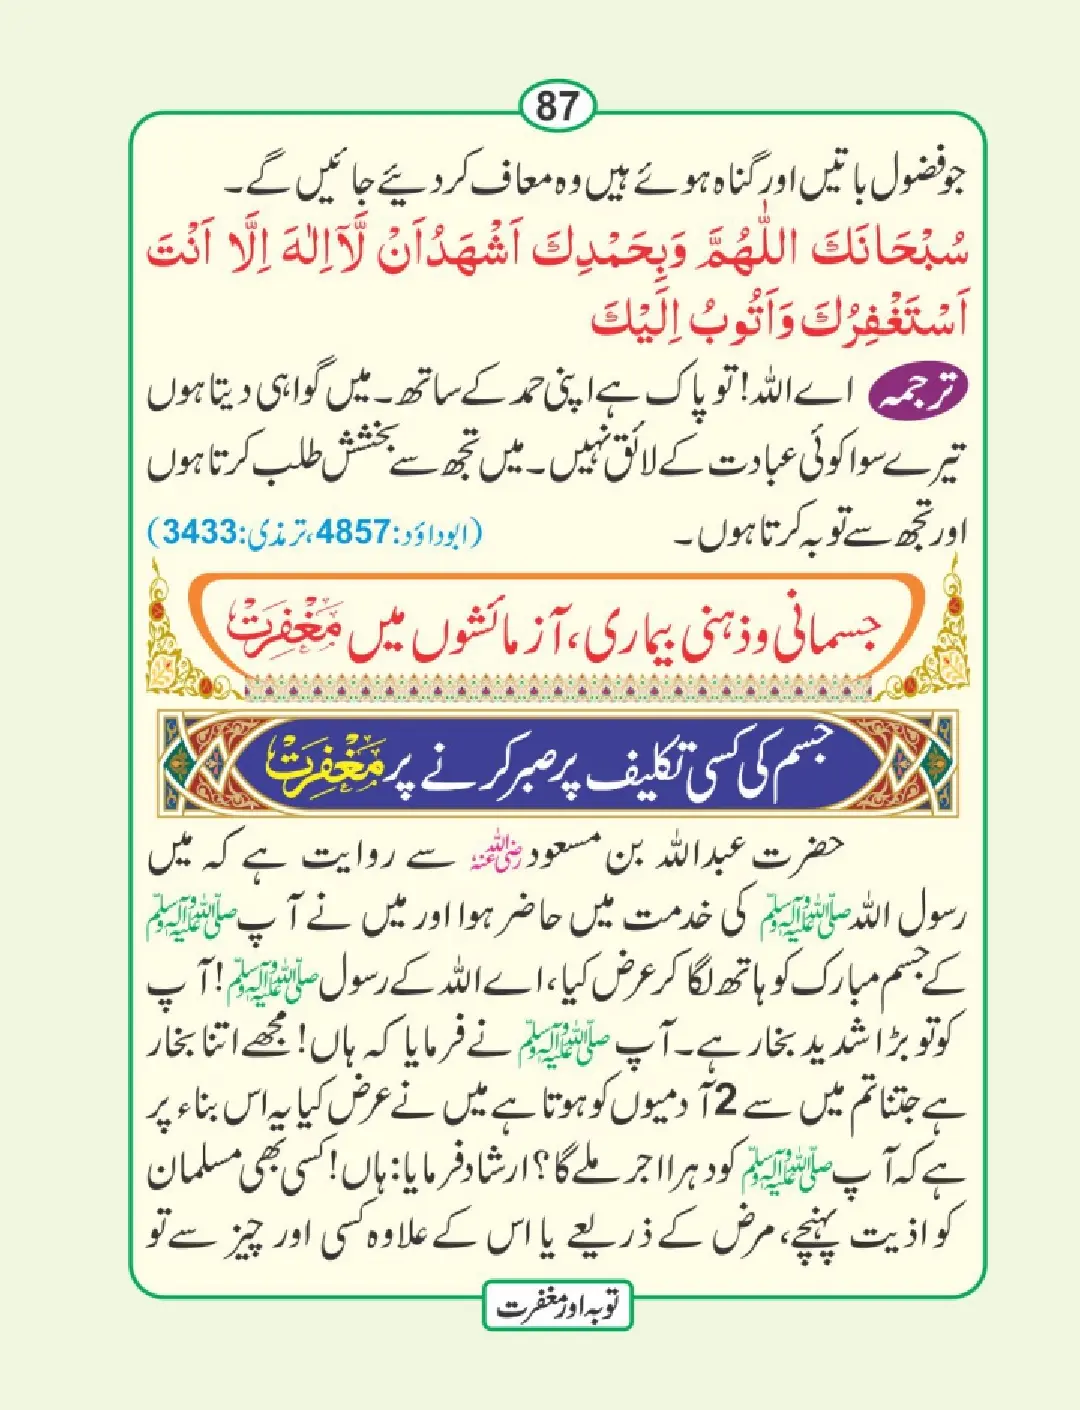 87
جو فضول باتیں اور گناہ ہوئے ہیں وہ معاف کر دیئے جائیں گے۔
سُبْحَانَكَ اللّٰهُمَّ وَبِحَمْدِكَ اَشْهَدُاَنْ لَّآاِلٰهَ اِلَّا اَنْتَ
اَسْتَغْفِرُكَ وَاَتُوبُ اِلَيْكَ
ترجمہ اے اللہ! تو پاک ہے اپنی حمد کے ساتھ۔ میں گواہی دیتا ہوں
تیرے سوا کوئی عبادت کے لائق نہیں۔ میں تجھ سے بخشش طلب کرتا ہوں
اور تجھ سے توبہ کرتا ہوں۔ (ابوداؤد:4857، ترمذی:3433)
جسمانی و ذہنی بیماری، آزمائشوں میں مَغْفِرَتْ
جسم کی کسی تکلیف پر صبر کرنے پر مَغْفِرَتْ
حضرت عبداللہ بن مسعود رضی اللہ عنہ سے روایت ہے کہ میں
رسول اللہ ﷺ کی خدمت میں حاضر ہوا اور میں نے آپ ﷺ
کے جسم مبارک کو ہاتھ لگا کر عرض کیا، اے اللہ کے رسول ﷺ! آپ
کو تو بڑا شدید بخار ہے۔ آپ ﷺ نے فرمایا کہ ہاں! مجھے اتنا بخار
ہے جتنا تم میں سے 2 آدمیوں کو ہوتا ہے میں نے عرض کیا یہ اس بناء پر
ہے کہ آپ ﷺ کو دہرا اجر ملے گا؟ ارشاد فرمایا: ہاں! کسی بھی مسلمان
کو اذیت پہنچے، مرض کے ذریعے یا اس کے علاوہ کسی اور چیز سے تو
توبہ اور مغفرت